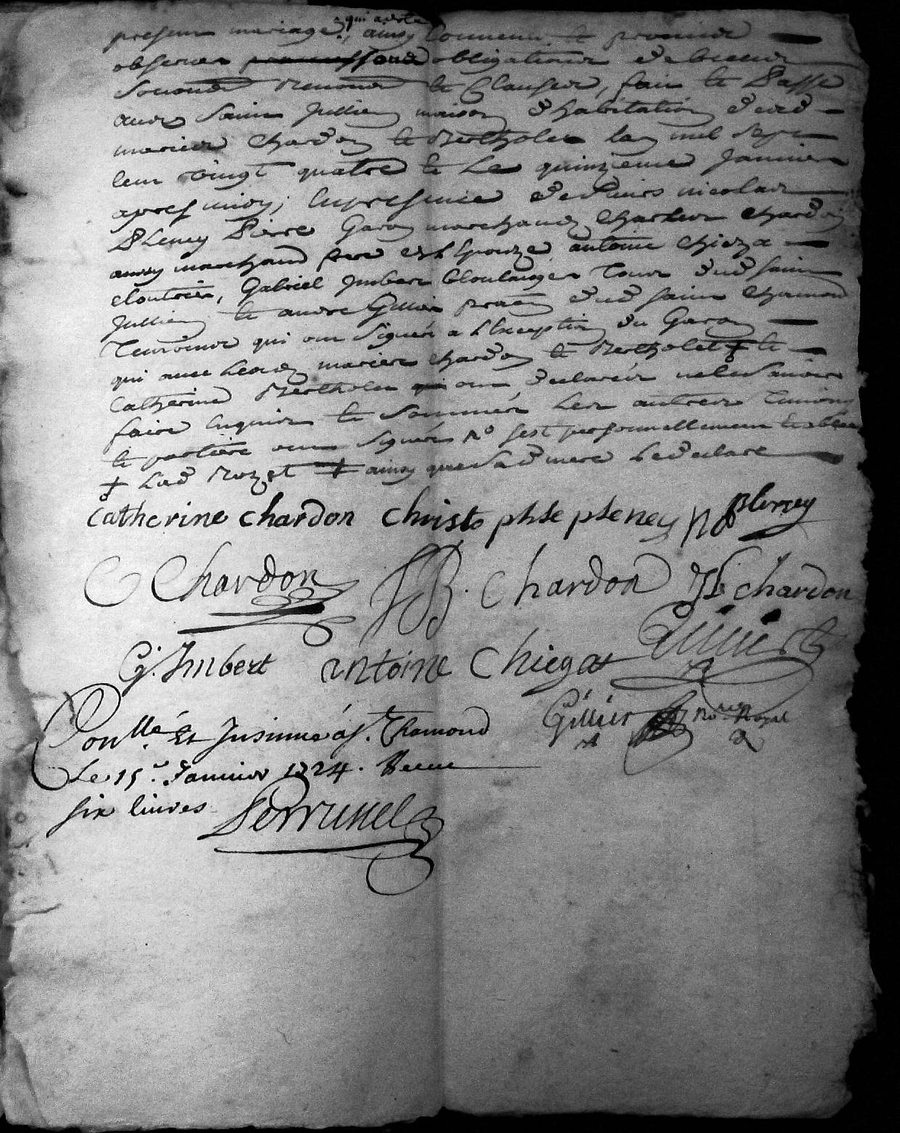 qui a este
present mariage, ainsy convenu et promis
observer obligations de biens
soumis renoncé et Clauses, fait et Passé
aud Saint Jullien maison d'habitation dud
mariés chardon et Bertholet lan mil sept
cent vingt quatre et Le quinzieme Janvier
apres midy, en presence de sieurs nicolas
Pleney Pierre Garon marchand, charles chardon
aussy marchand frere espouze, antoine chieza
cloutrier, Gabriel Imbert boulanger Tous dud saint
Jullien et andre Gillier praen dud saint chamond
Tesmoins qui ont Signés a L'exception du Garon
qui avec lesd mariés chardon et Bertholet ‡ et
Catherine Bertholet ont declarés ne le Scavoir
faire Enquis et Sommés Les autres Tesmoins
et parties ont Signés No Sest personnellement
‡ Lad Rozet ‡ ainsy que Sad mere Le declare
Catherine chardon christo phle pleney No Pleney
C Chardon JB. Chardon JB chardon
G. Imbert antoine Chiega Gillier
Gillier Nore Royal
Conllé Et Insinué á St. Chamond
Le 15e. Janvier 1724. Receu
six livres Perrussel